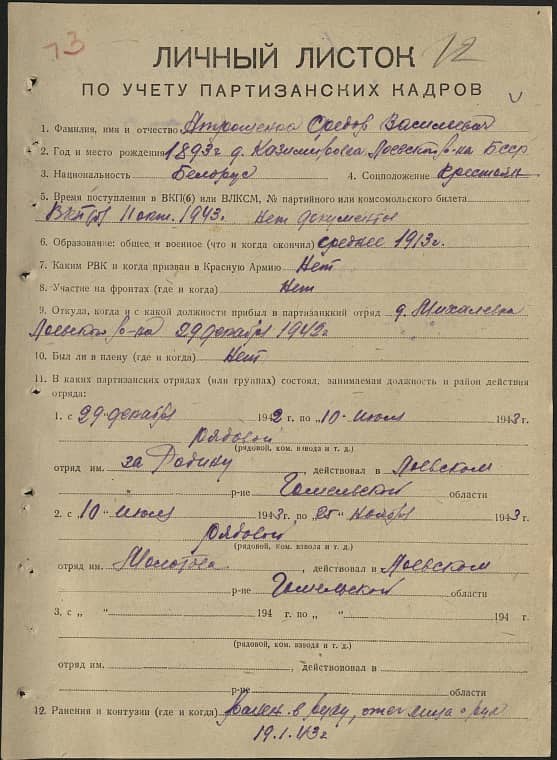 13
12
ЛИЧНЫЙ ЛИСТОК
ПО УЧЕТУ ПАРТИЗАНСКИХ КАДРОВ
1. Фамилия, имя и отчество Васильевич
2. Год и место рождения 1893 г д. Казимировка Лоевского р-на БССР
3. Национальность Белорус 4. Соцположение Крестьян
5. Время поступления в ВКП(б) или ВЛКСМ, № партийного или комсомольского билета
ВКП(б) 11 окт. 1943. Нет документы
6. Образование: общее, и военное (что и когда окончил) среднее 1913 г.
7. Каким РВК и когда призван в Красную Армию Нет
8. Участие на фронтах (где и когда) Нет
9. Откуда, когда и с какой должности прибыл в партизанкий отряд д. Михалевка
Лоевского р-на 29 декабря 1942 г
10. Был ли в плену (где и когда) Нет
11. В каких партизанских отрядах (или группах) состоял, занимаемая должность и район действия
отряда:
1. с 29 декабря 1942 г. по „10 июля 1943 г.
рядовой
(рядовой, ком. взвода и т. д.)
отряд им. за Родину действовал в Лоевском
р-не Гомельской области
2. с „10 июля 1943 г. по „25 ноября 1943 г.
рядовой
(рядовой, ком. взвода и т. д.)
отряд им. Молотова, действовал в Лоевском
р-не Гомельской области
3. с „ “ 194 г. по „ “ 194 г.
(рядовой, ком. взвода и т. д.)
отряд им. , действововал в
р-не области
12. Ранения и контузии (где и когда) ранен в руку, лица
19.1.43 г